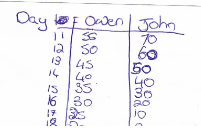 Day Owen John
11 55 70
12 50 60
13 45 50
14 40 40
15 35 30
16 30 20
17 25 10
18